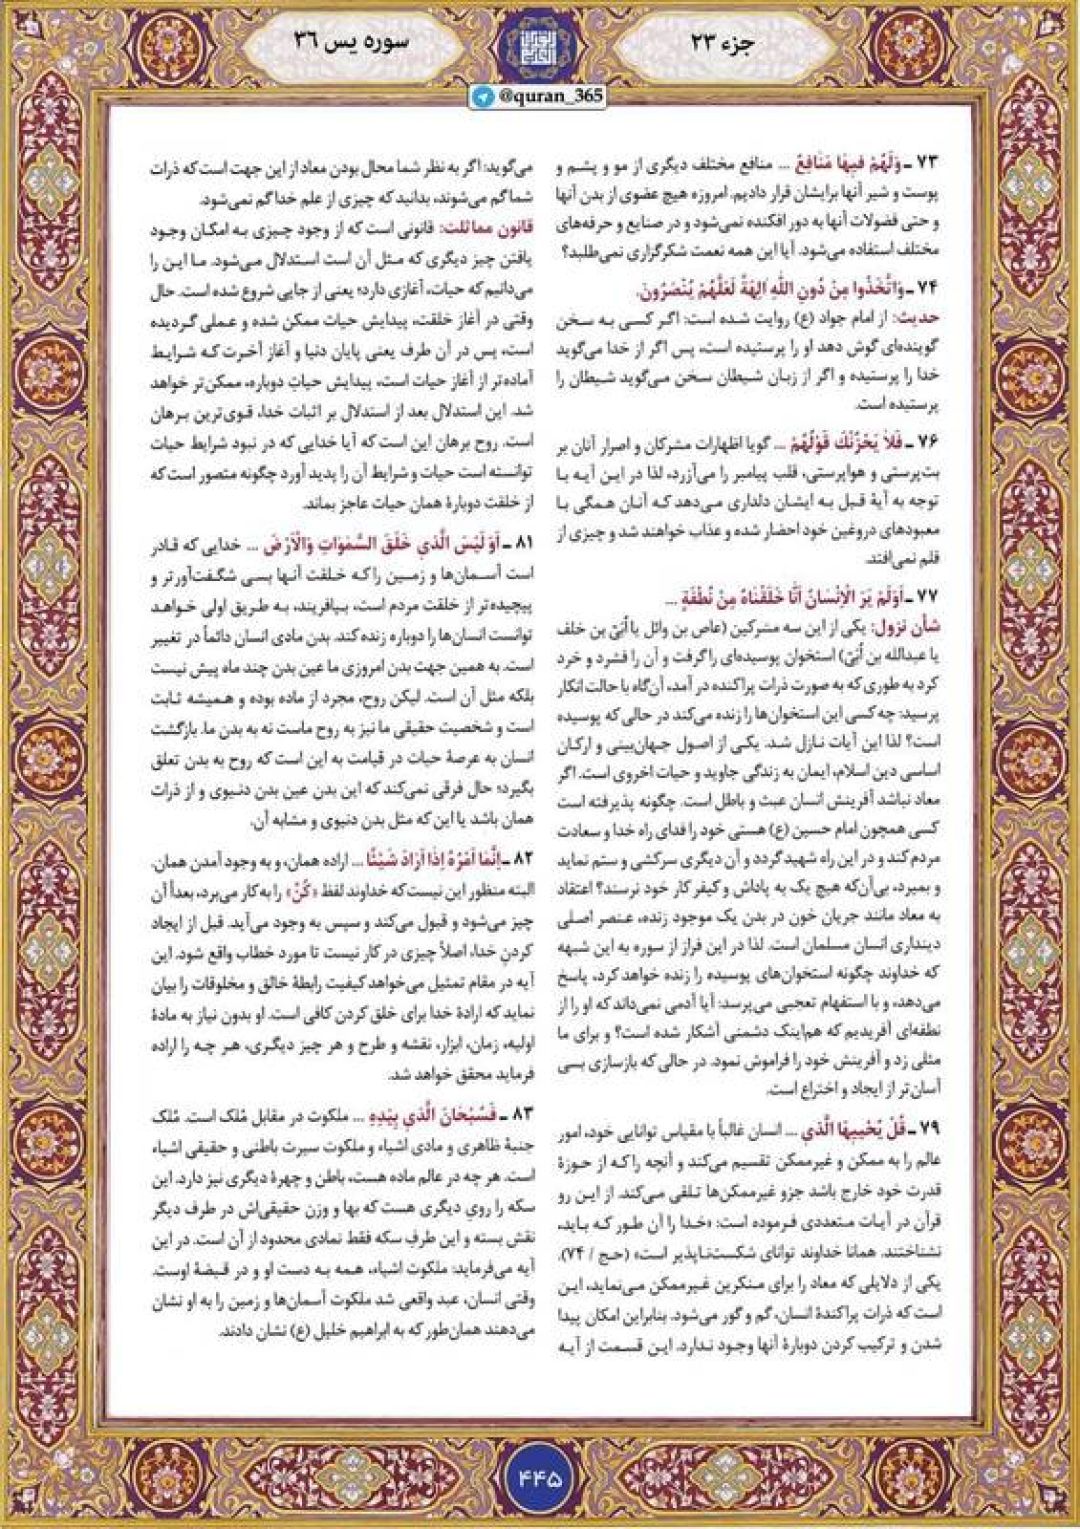 جزء ۲۳
سوره یس ۳۶
@quran_365
۷۳ ـ وَلَهُمْ فیها مَنافِعُ ... منافع مختلف دیگری از مو و پشم و
پوست و شیر آنها برایشان قرار دادیم. امروزه هیچ عضوی از بدن آنها
و حتی فضولات آنها به دور افکنده نمی‌شود و در صنایع و حرفه‌های
مختلف استفاده می‌شود. آیا این همه نعمت شکرگزاری نمی‌طلبد؟
۷۴ ـ وَاتَّخَذُوا مِنْ دُونِ اللهِ آلِهَةً لَعَلَّهُمْ يُنْصَرُونَ.
حدیث: از امام جواد (ع) روایت شده است: اگر کسی به سخن
گوینده‌ای گوش دهد او را پرستیده است، پس اگر از خدا می‌گوید
خدا را پرستیده و اگر از زبان شیطان سخن می‌گوید شیطان را
پرستیده است.
۷۶ ـ فَلاٰ يَحْزُنْكَ قَوْلُهُمْ ... گویا اظهارات مشرکان و اصرار آنان بر
بت‌پرستی و هواپرستی، قلب پیامبر را می‌آزرد، لذا در این آیه با
توجه به آیهٔ قبل به ایشان دلداری می‌دهد که آنان همگی با
معبودهای دروغین خود احضار شده و عذاب خواهند شد و چیزی از
قلم نمی‌افتد.
۷۷ ـ أَوَلَمْ يَرَ الْإِنْسَانُ أَنَّا خَلَقْنَاهُ مِنْ نُطْفَةٍ ...
شأن نزول: یکی از این سه مشرکین (عاص بن وائل یا أُبَیّ بن خلف
یا عبدالله بن أُبَیّ) استخوان پوسیده‌ای را گرفت و آن را فشرد و خرد
کرد به طوری که به صورت ذرات پراکنده در آمد، آن‌گاه با حالت انکار
پرسید: چه کسی این استخوان‌ها را زنده می‌کند در حالی که پوسیده
است؟ لذا این آیات نازل شد. یکی از اصول جهان‌بینی و ارکان
اساسی دین اسلام، ایمان به زندگی جاوید و حیات اخروی است. اگر
معاد نباشد آفرینش انسان عبث و باطل است. چگونه پذیرفته است
کسی همچون امام حسین (ع) هستی خود را فدای راه خدا و سعادت
مردم کند و در این راه شهید گردد و آن دیگری سرکشی و ستم نماید
و بمیرد، بی‌آن‌که هیچ یک به پاداش و کیفر کار خود نرسند؟ اعتقاد
به معاد مانند جریان خون در بدن یک موجود زنده، عنصر اصلی
دینداری انسان مسلمان است. لذا در این فراز از سوره به این شبهه
که خداوند چگونه استخوان‌های پوسیده را زنده خواهد کرد، پاسخ
می‌دهد، و با استفهام تعجبی می‌پرسد: آیا آدمی نمی‌داند که او را از
نطفه‌ای آفریدیم که هم‌اینک دشمنی آشکار شده است؟ و برای ما
مثلی زد و آفرینش خود را فراموش نمود. در حالی که بازسازی بسی
آسان‌تر از ایجاد و اختراع است.
۷۹ ـ قُلْ يُحْيِيهَا الَّذِي ... انسان غالباً با مقیاس توانایی خود، امور
عالم را به ممکن و غیرممکن تقسیم می‌کند و آنچه را که از حوزهٔ
قدرت خود خارج باشد جزو غیرممکن‌ها تلقی می‌کند. از این رو
قرآن در آیات متعددی فرموده است: «خدا را آن طور که باید،
نشناختند. همانا خداوند توانای شکست‌ناپذیر است» (حج / ۷۴).
یکی از دلایلی که معاد را برای منکرین غیرممکن می‌نماید، این
است که ذرات پراکندهٔ انسان، گم و گور می‌شود. بنابراین امکان پیدا
شدن و ترکیب کردن دوبارهٔ آنها وجود ندارد. این قسمت از آیه
می‌گوید: اگر به نظر شما محال بودن معاد از این جهت است که ذرات
شما گم می‌شوند، بدانید که چیزی از علم خدا گم نمی‌شود.
قانون مماثلت: قانونی است که از وجود چیزی به امکان وجود
یافتن چیز دیگری که مثل آن است استدلال می‌شود. ما این را
می‌دانیم که حیات، آغازی دارد؛ یعنی از جایی شروع شده است. حال
وقتی در آغاز خلقت، پیدایش حیات ممکن شده و عملی گردیده
است، پس در آن طرف یعنی پایان دنیا و آغاز آخرت که شرایط
آماده‌تر از آغاز حیات است، پیدایش حیاتِ دوباره، ممکن‌تر خواهد
شد. این استدلال بعد از استدلال بر اثبات خدا، قوی‌ترین برهان
است. روح برهان این است که آیا خدایی که در نبود شرایط حیات
توانسته است حیات و شرایط آن را پدید آورد چگونه متصور است که
از خلقت دوبارهٔ همان حیات عاجز بماند.
۸۱ ـ أَوَ لَيْسَ الَّذِي خَلَقَ السَّمٰوَاتِ وَالْأَرْضَ ... خدایی که قادر
است آسمان‌ها و زمین را که خلقت آنها بسی شگفت‌آورتر و
پیچیده‌تر از خلقت مردم است، بیافریند، به طریق اولی خواهد
توانست انسان‌ها را دوباره زنده کند. بدن مادی انسان دائماً در تغییر
است. به همین جهت بدن امروزی ما عین بدن چند ماه پیش نیست
بلکه مثل آن است. لیکن روح، مجرد از ماده بوده و همیشه ثابت
است و شخصیت حقیقی ما نیز به روح ماست نه به بدن ما. بازگشت
انسان به عرصهٔ حیات در قیامت به این است که روح به بدن تعلق
بگیرد؛ حال فرقی نمی‌کند که این بدن عین بدن دنیوی و از ذرات
همان باشد یا این‌که مثل بدن دنیوی و مشابه آن.
۸۲ ـ إِنَّمَا أَمْرُهُ إِذَا أَرَادَ شَيْئًا ... اراده همان، و به وجود آمدن همان.
البته منظور این نیست که خداوند لفظ «كُنْ» را به کار می‌برد، بعداً آن
چیز می‌شود و قبول می‌کند و سپس به وجود می‌آید. قبل از ایجاد
کردنِ خدا، اصلاً چیزی در کار نیست تا مورد خطاب واقع شود. این
آیه در مقام تمثیل می‌خواهد کیفیت رابطهٔ خالق و مخلوقات را بیان
نماید که ارادهٔ خدا برای خلق کردن کافی است. او بدون نیاز به مادهٔ
اولیه، زمان، ابزار، نقشه و طرح و هر چیز دیگری، هر چه را اراده
فرماید محقق خواهد شد.
۸۳ ـ فَسُبْحَانَ الَّذِي بِيَدِهِ ... ملکوت در مقابل مُلک است. مُلک
جنبهٔ ظاهری و مادی اشیاء و ملکوت سیرت باطنی و حقیقی اشیاء
است. هر چه در عالم ماده هست، باطن و چهرهٔ دیگری نیز دارد. این
سکه را رویِ دیگری هست که بها و وزن حقیقی‌اش در طرف دیگر
نقش بسته و این طرفِ سکه فقط نمادی محدود از آن است. در این
آیه می‌فرماید: ملکوت اشیاء، همه به دست او و در قبضهٔ اوست.
وقتی انسان، عبد واقعی شد ملکوت آسمان‌ها و زمین را به او نشان
می‌دهند همان‌طور که به ابراهیم خلیل (ع) نشان دادند.
۴۴۵